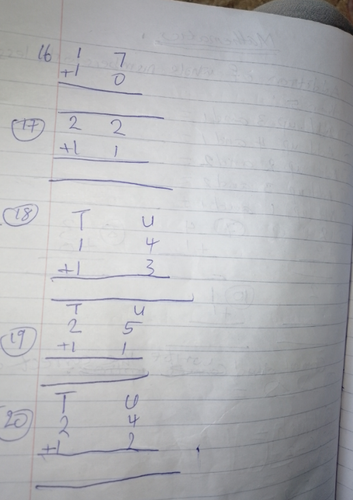 16 1 7
+1 0
17 2 2
+1 1
18
T U
1 4
+1 3
T U
19 2 5
+1 1
T U
20 2 4
+1 2